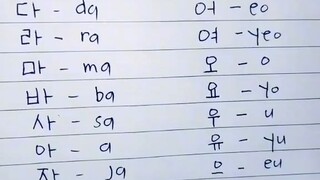 다 - da 어 - eo
라 - ra 여 - yeo
마 - ma 오 - o
바 - ba 요 - yo
사 - sa 우 - u
아 - a 유 - yu
자 - ja 으 - eu